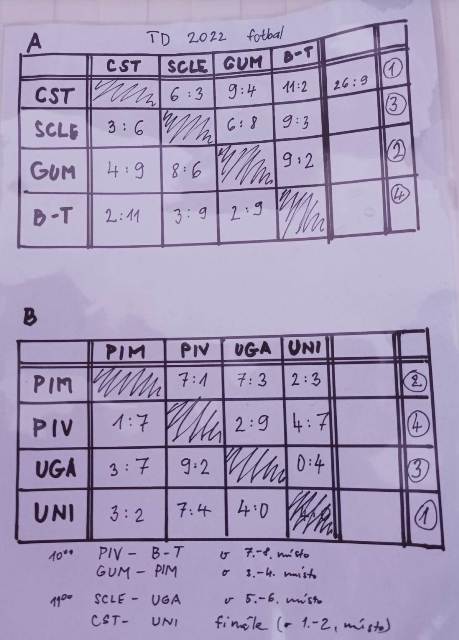 A TD 2022 fotbal
CST SCLE GUM B-T
CST 6:3 9:4 11:2 26:9 1
SCLE 3:6 6:8 9:3 3
GUM 4:9 8:6 9:2 2
B-T 2:11 3:9 2:9 4
B
PIM PIV UGA UNI
PIM 7:1 7:3 2:3 2
PIV 1:7 2:9 4:7 4
UGA 3:7 9:2 0:4 3
UNI 3:2 7:4 4:0 1
10⁰⁰ PIV - B-T o 7.-8. místo
GUM - PIM o 3.-4. místo
11⁰⁰ SCLE - UGA o 5.-6. místo
CST - UNI finále (o 1.-2. místo)